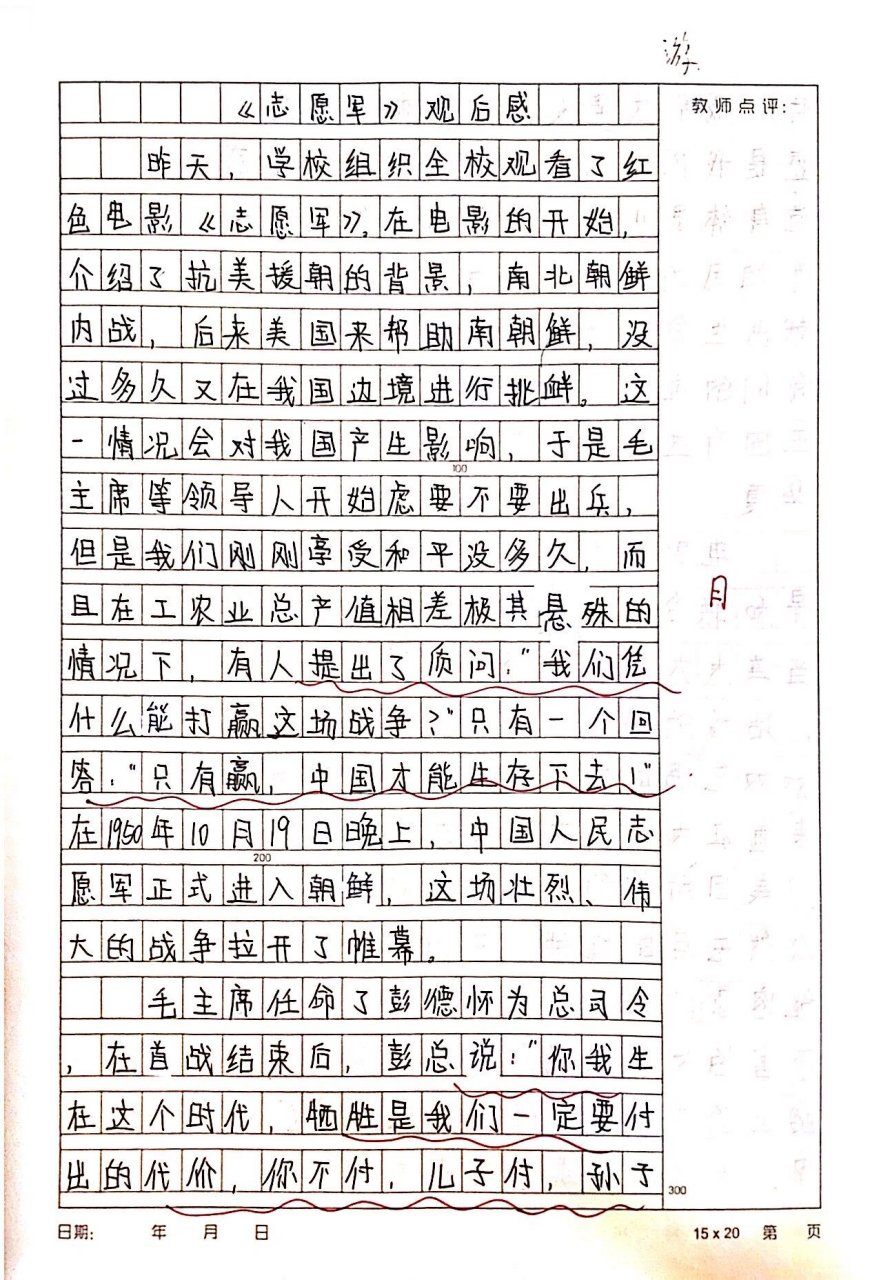 游
教师点评:
《志愿军》观后感
昨天,学校组织全校观看了红
色电影《志愿军》。在电影的开始,
介绍了抗美援朝的背景,南北朝鲜
内战,后来美国来帮助南朝鲜,没
过多久又在我国边境进行挑衅。这
一情况会对我国产生影响,于是毛
100
主席等领导人开始虑要不要出兵,
但是我们刚刚享受和平没多久,而
月
且在工农业总产值相差极其悬殊的
情况下,有人提出了质问:"我们凭
什么能打赢这场战争?"只有一个回
答:"只有赢,中国才能生存下去!"
在1950年10月19日晚上,中国人民志
200
愿军正式进入朝鲜,这场壮烈、伟
大的战争拉开了帷幕。
毛主席任命了彭德怀为总司令
,在首战结束后,彭总说:"你我生
在这个时代,牺牲是我们一定要付
出的代价,你不付,儿子付,孙子
300
日期: 年 月 日 15x20 第 页